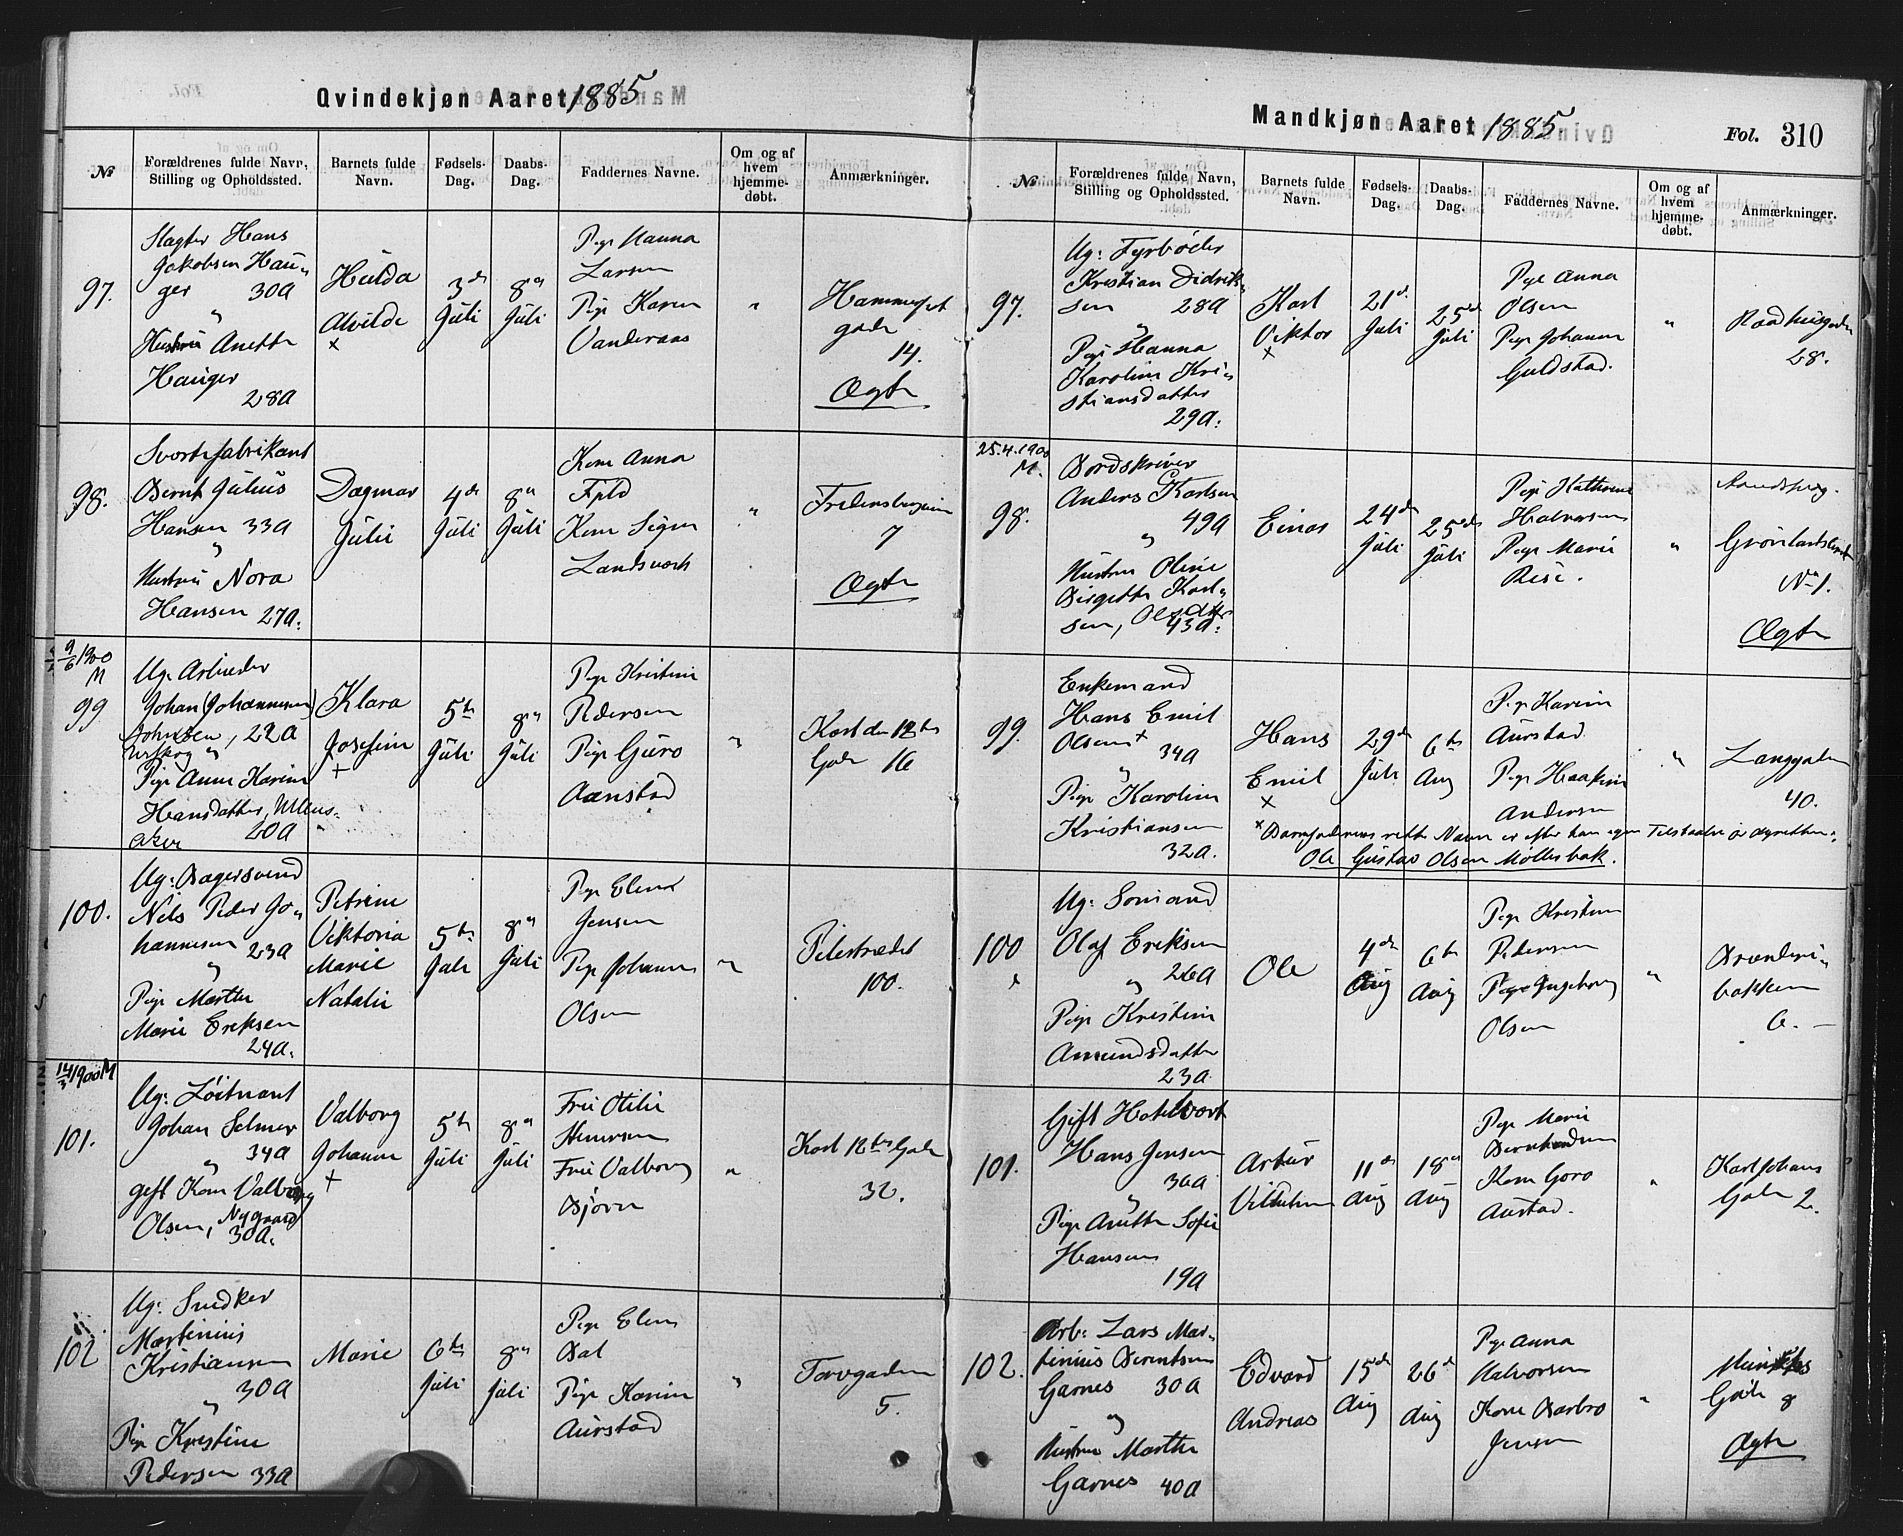 Qvindekjøn Aaret 1885
№
Forældrenes fulde Navn, Stilling og Opholdssted.
Barnets fulde Navn.
Fødsels-Dag.
Daabs-Dag.
Faddernes Navne.
Om og af hvem hjemmedøbt.
Anmærkninger.
97.
Slagter Hans
Jakobsen Hau„
ger 30A
„
Hustru Anette
Hauger
28A
Hulda
Alvilde
×
3de
Juli
8de
Juli
Pige Hanna
Larsen
Pige Karen
Vanderaas
„
14.
Ægte
98.
Sværtefabrikant
Bernt Julius
Hansen 33A
„
Hustru Nora
Hansen 27A.
Dagmar
Julie
4de
Juli
8de
Juli
Kone Anna
Kone Signe
„
7
Ægte
9/6 1900
M
99
Ug. Arbeider
Johan (Johannesen)
Johnsen, 22A
Urskog „
Pige Anne Karine
Hansdatter, Ullens-
aker 20A
Klara
Josefine
+
5te
Juli
8de
Juli
Pige Kristine
Pedersen
Pige Guro
Aanstad
„
Karl den 12tes
Gade 16
100.
Ug: Bagersvend
Nils Peder Jo„
hannesen 23A
„
Pige Marthe
Marie Eriksen
24A.
Petrine
Viktoria
Marie
Natalie
5te
Juli
8de
Juli
Pige Elena
Jensen
Pige Johanne
Olsen
„
Pilestrædet
100.
14/3 1900 M
101.
Ug: Løitnant
Johan Selmer
34A
„
gift Kone Valborg
Olsen, Nygaard
30A.
Valborg
Johanne
+
5te
Juli
8de
Juli
Fru Otilie
Fru Valborg
Bjørn
„
Karl 12tes Gade
32.
102
Ug: Snedker
Martinius
Kristiansen
30A
„
Pige Kristine
Pedersen 33A
Marie
6te
Juli
8de
Juli
Pige Elen
Dal
Pige Karine
Aurstad
„
Torvgaden
5.
Mandkjøn Aaret 1885
Fol. 310
№
Forældrenes fulde Navn, Stilling og Opholdssted.
Barnets fulde Navn.
Fødsels-Dag.
Daabs-Dag.
Faddernes Navne.
Om og af hvem hjemmedøbt.
Anmærkninger.
97.
Ug: Fyrbøder
Kristian Didrik„
sen 28A
„
Pige Hanna
Karoline Kri„
stiansdatter
29A.
Karl
Viktor
×
21de
Juli
25de
Juli
Pige Anna
Olsen
Pige Johanne
Guldstad.
„
Raadhusgaden
28.
25.4.1900
M.
98.
Bordskriver
Anders Karlsen
49A
„
Hustru Oline
Birgitte Karl„
sen, Olsdtter
43A.
Einar
24de
Juli
25de
Juli
Pige Kathrine
Halvorsen
Pige Marie
Rese.
„
№ 1.
Ægte
99.
Enkemand
Hans Emil
Olsen+
34A
„
Pige Karoline
Kristiansen
32A.
Hans
Emil
×
29de
Juli
6te
Aug
Pige Karine
Aurstad
Pige Haakine
Andersen
„
Langgaden
40.
× Barnfaderens rette Navn er efter hans egen Tilstaaelse
Ole Gustav Olsen Møllerbak.
100
×
Ug: Sømand
Olaf Eriksen
26A
„
Pige Kristine
Amundsdatter
23A
Ole
4de
Aug
6te
Aug
Pige Kristine
Pedersen
Pige Ingeborg
Olsen
„
Brænderi„
bakken
6.
101.
Gift Hotelvært
Hans Jensen
30A
„
Pige Anette Sofie
Hansen
19A
Artur
Vilhelm
11de
Aug
18de
Aug
Pige Marie
Berntsen
Kone Goro
Aurstad.
„
Karl Johans
Gade 2.
102.
Arb: Lars Mar„
tinius Berentsen
Garnes 30A
„
Hustru Marthe
Garnes 40A
Edvard
Andreas
15de
Aug
26de
Aug
Pige Anna
Halvorsen
Kone Barbro
Jensen
„
Munkes
Gade 8
Ægte